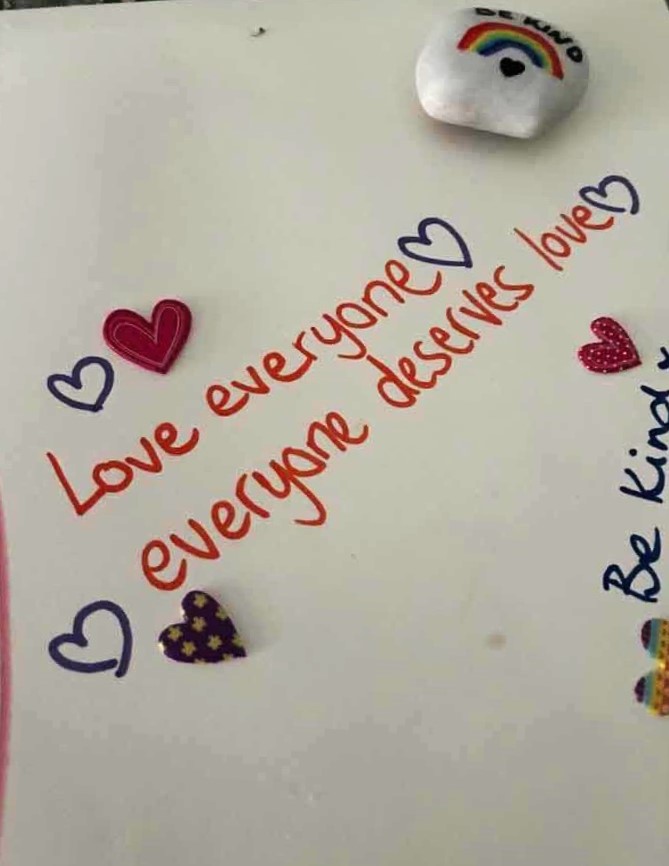 BE KIND
Love everyone
everyone deserves love
Be Kind